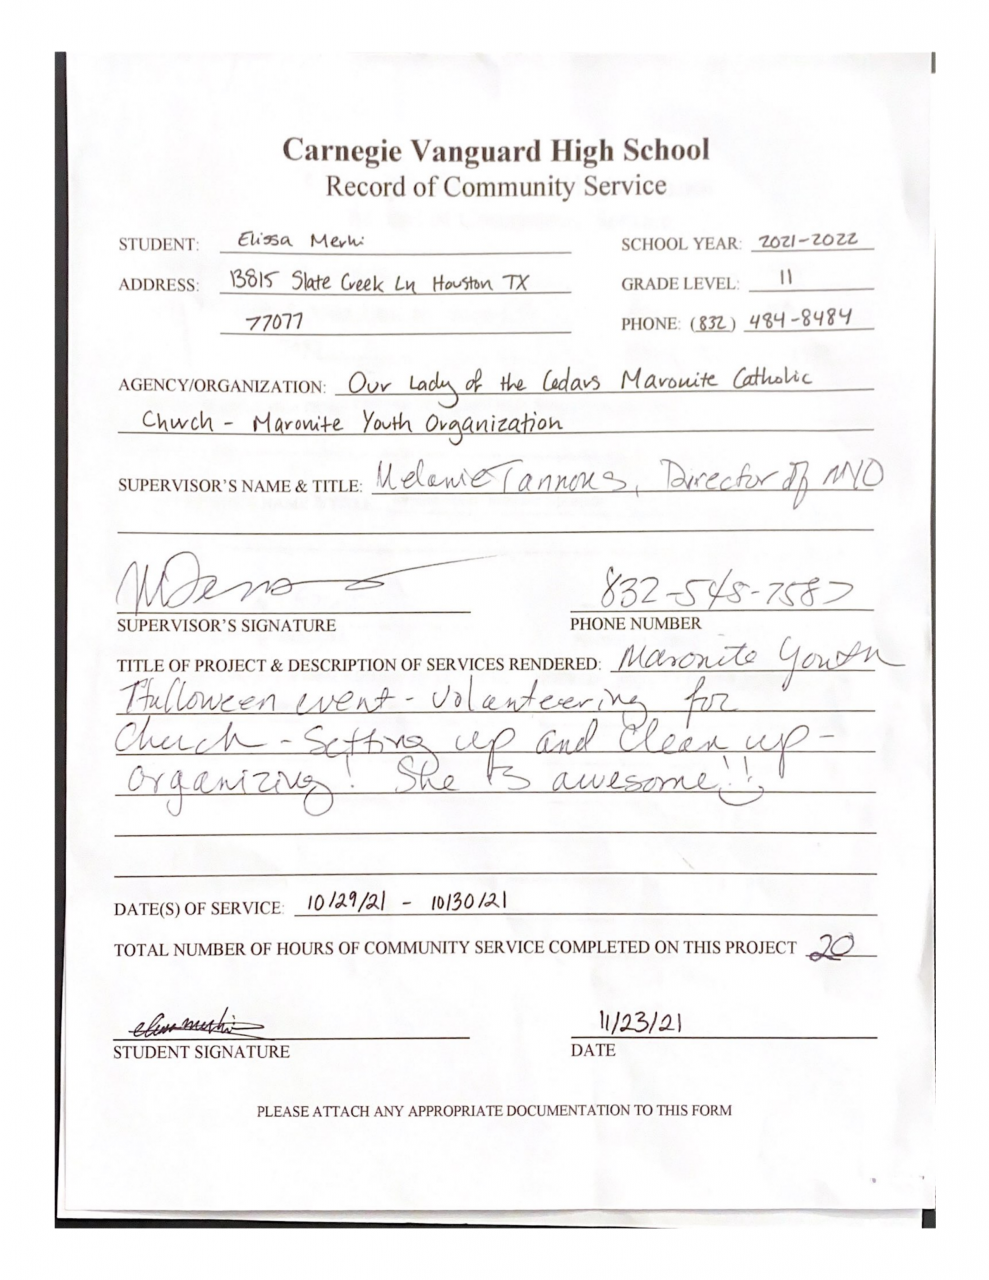 Carnegie Vanguard High School
Record of Community Service
STUDENT: Elissa Merhi SCHOOL YEAR: 2021-2022
ADDRESS: 13815 Slate Creek Ln Houston TX GRADE LEVEL: 11
77077 PHONE: (832) 484-8484
AGENCY/ORGANIZATION: Our Lady of the Cedars Maronite Catholic
Church - Maronite Youth Organization
SUPERVISOR'S NAME & TITLE: Melanie Tannous, Director of MYO
832-545-7587
SUPERVISOR'S SIGNATURE PHONE NUMBER
TITLE OF PROJECT & DESCRIPTION OF SERVICES RENDERED: Maronite Youth
Halloween event - Volunteering for
Church - Setting up and Clean up -
organizing! She is awesome!!
DATE(S) OF SERVICE: 10/29/21 - 10/30/21
TOTAL NUMBER OF HOURS OF COMMUNITY SERVICE COMPLETED ON THIS PROJECT 20
elissa merhi 11/23/21
STUDENT SIGNATURE DATE
PLEASE ATTACH ANY APPROPRIATE DOCUMENTATION TO THIS FORM